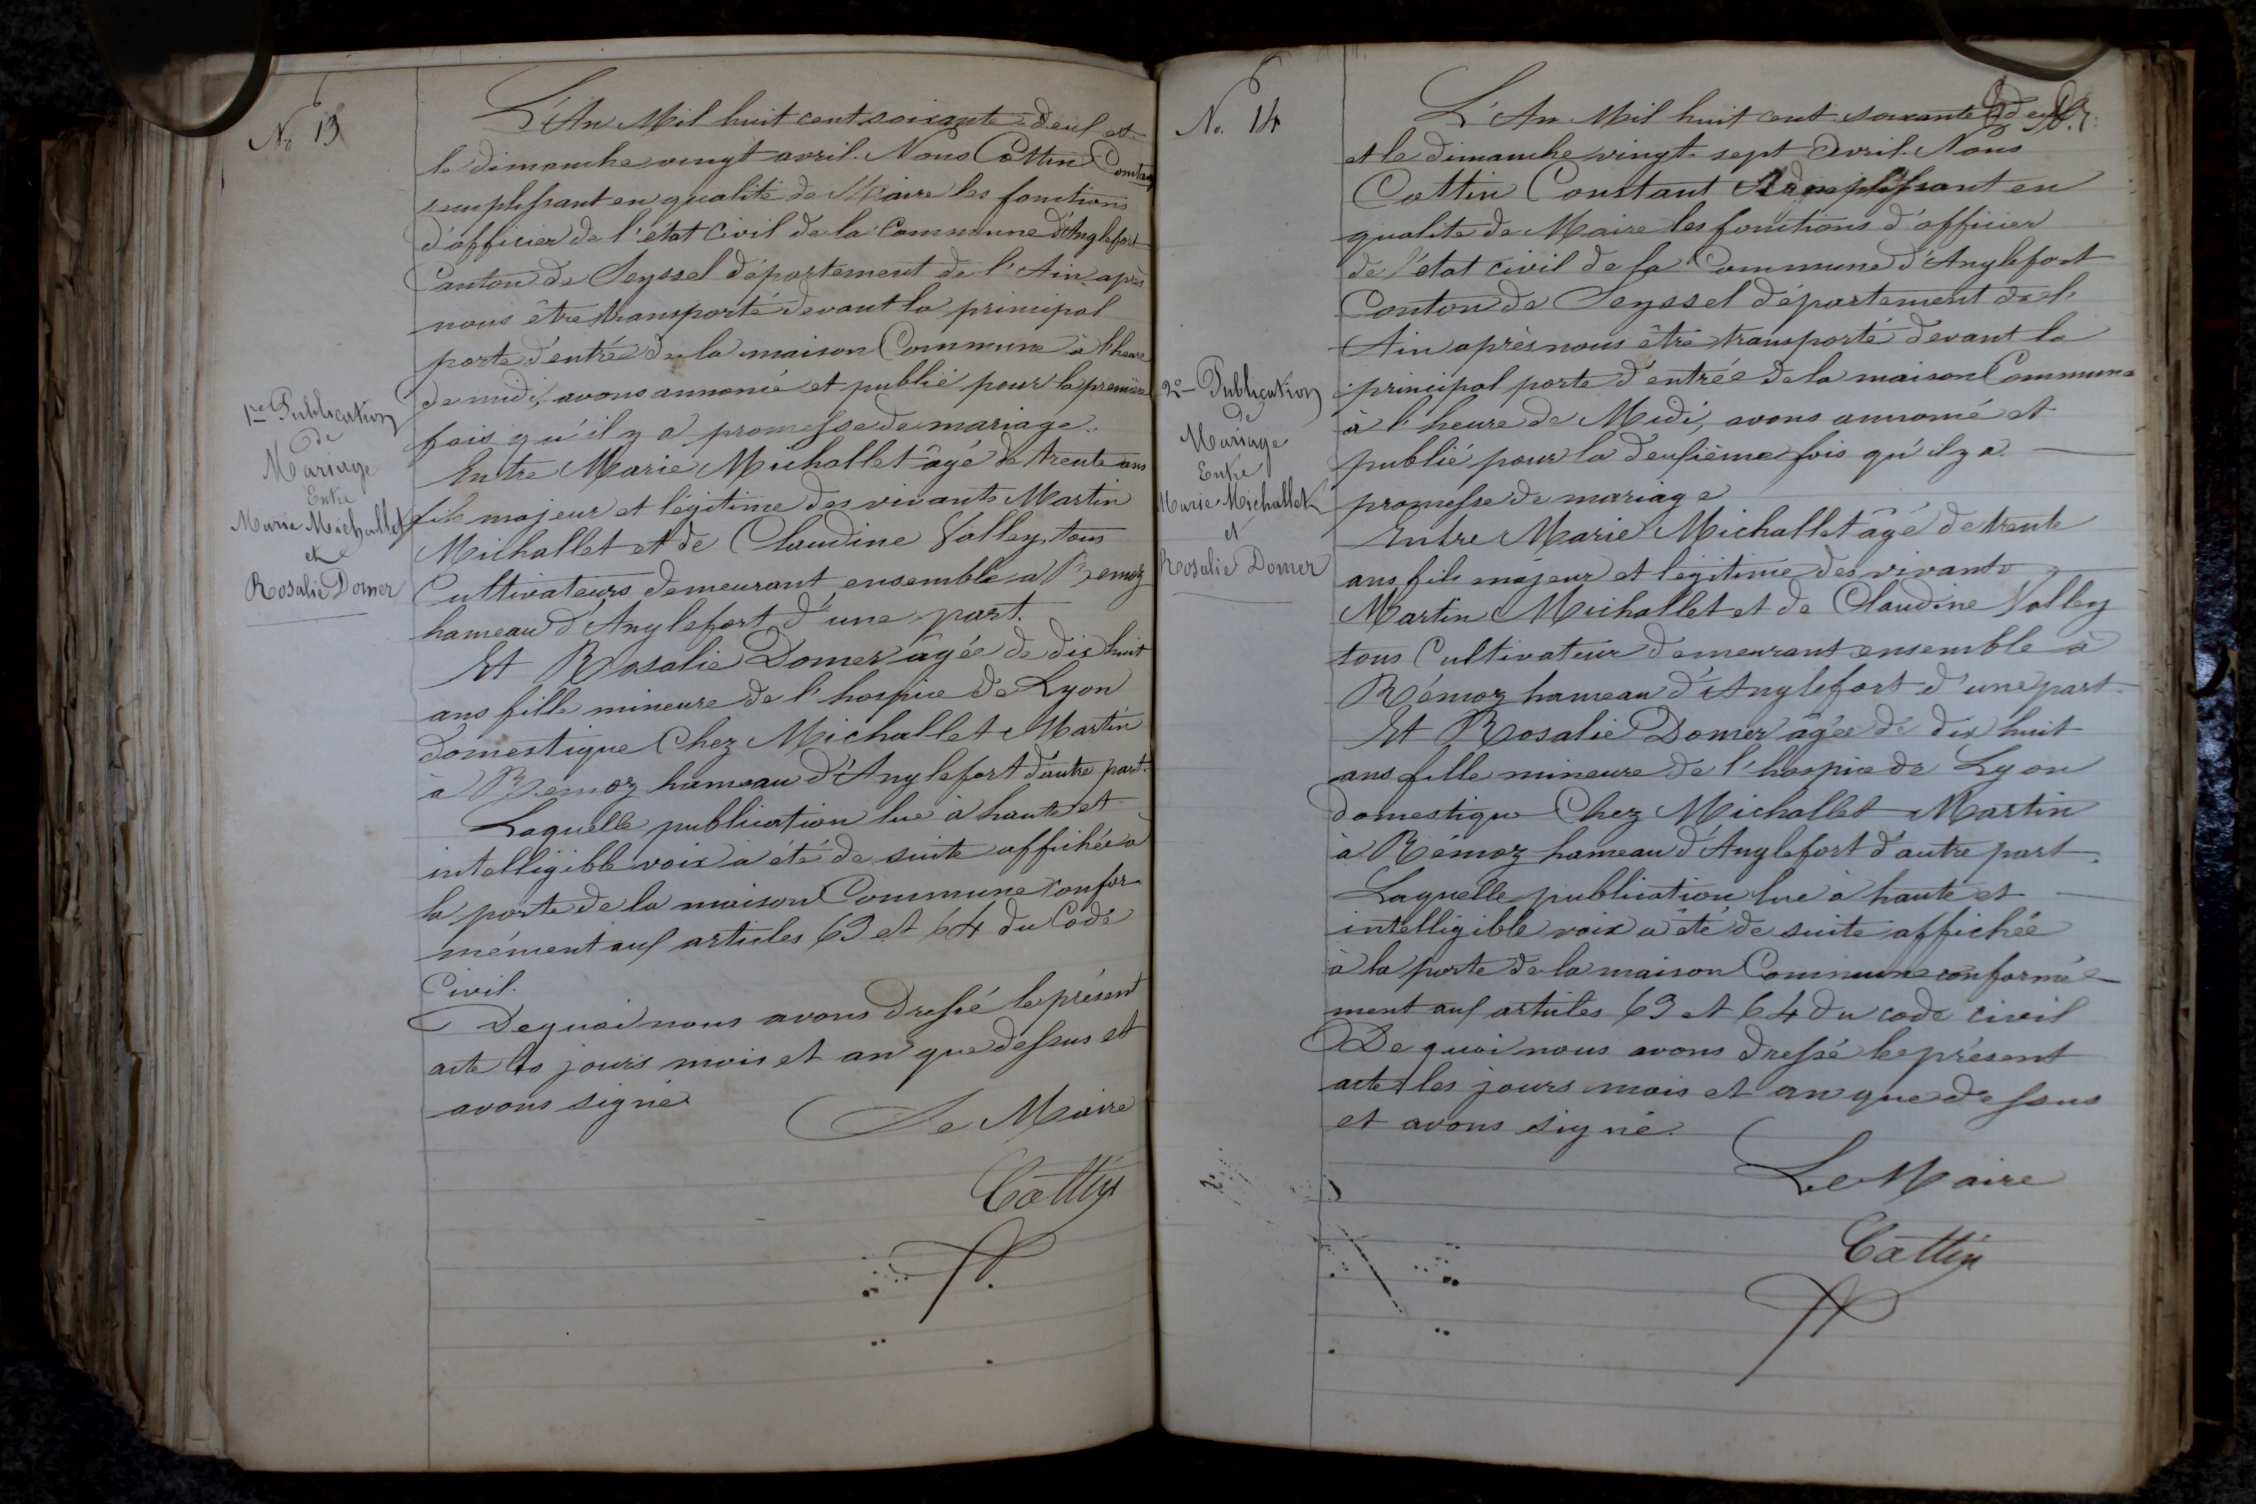 No 13
1re Publication
de
Mariage
Entre
Marie Michallet
et
Rosalie Domer
L'An Mil huit cent soixante deux et
le dimanche vingt avril. Nous Cottin Constant
remplissant en qualité de Maire les fonctions
d'officier de l'état Civil de la Commune d'Anglefort
Canton de Seyssel département de l'Ain après
nous être transporté devant la principal
porte d'entrée de la maison Commune à l'heure
de midi, avons annoncé et publié pour la première
fois qu'il y a promesse de mariage.
Entre Marie Michallet âgé de trente ans
fils majeur et légitime des vivants Martin
Michallet et de Claudine Valley tous
Cultivateurs demeurant ensemble à Rémoz
hameau d'Anglefort d'une part.
Et Rosalie Domer âgée de dix huit
ans fille mineure de l'hospice de Lyon
domestique Chez Michallet Martin
à Rémoz hameau d'Anglefort d'autre part.
Laquelle publication lue à haute et
intelligible voix a été de suite affichée à
la porte de la maison Commune confor-
mément aux articles 63 et 64 du Code
Civil.
De quoi nous avons dressé le présent
acte les jours mois et an que dessus et
avons signé
Le Maire
Cottin
No. 14
2e Publication
de
Mariage
Entre
Marie Michallet
et
Rosalie Domer
L'An Mil huit cent soixante deux
et le dimanche vingt sept Avril. Nous
Cottin Constant remplissant en
qualité de Maire les fonctions d'officier
de l'état civil de la Commune d'Anglefort
Canton de Seyssel département de l'
Ain après nous être transporté devant la
principal porte d'entrée de la maison Commune
à l'heure de Midi, avons annoncé et
publié pour la deuxième fois qu'il y a
promesse de mariage
Entre Marie Michallet âgé de trente
ans fils majeur et légitime des vivants
Martin Michallet et de Claudine Valley
tous Cultivateur demeurant ensemble à
Rémoz hameau d'Anglefort d'une part.
Et Rosalie Domer âgée de dix huit
ans fille mineure de l'hospice de Lyon
domestique Chez Michallet Martin
à Rémoz hameau d'Anglefort d'autre part.
Laquelle publication lue à haute et
intelligible voix a été de suite affichée
à la porte de la maison Commune conformé-
ment aux articles 63 et 64 du code civil
De quoi nous avons dressé le présent
acte les jours mois et an que dessus
et avons signé.
Le Maire
Cottin